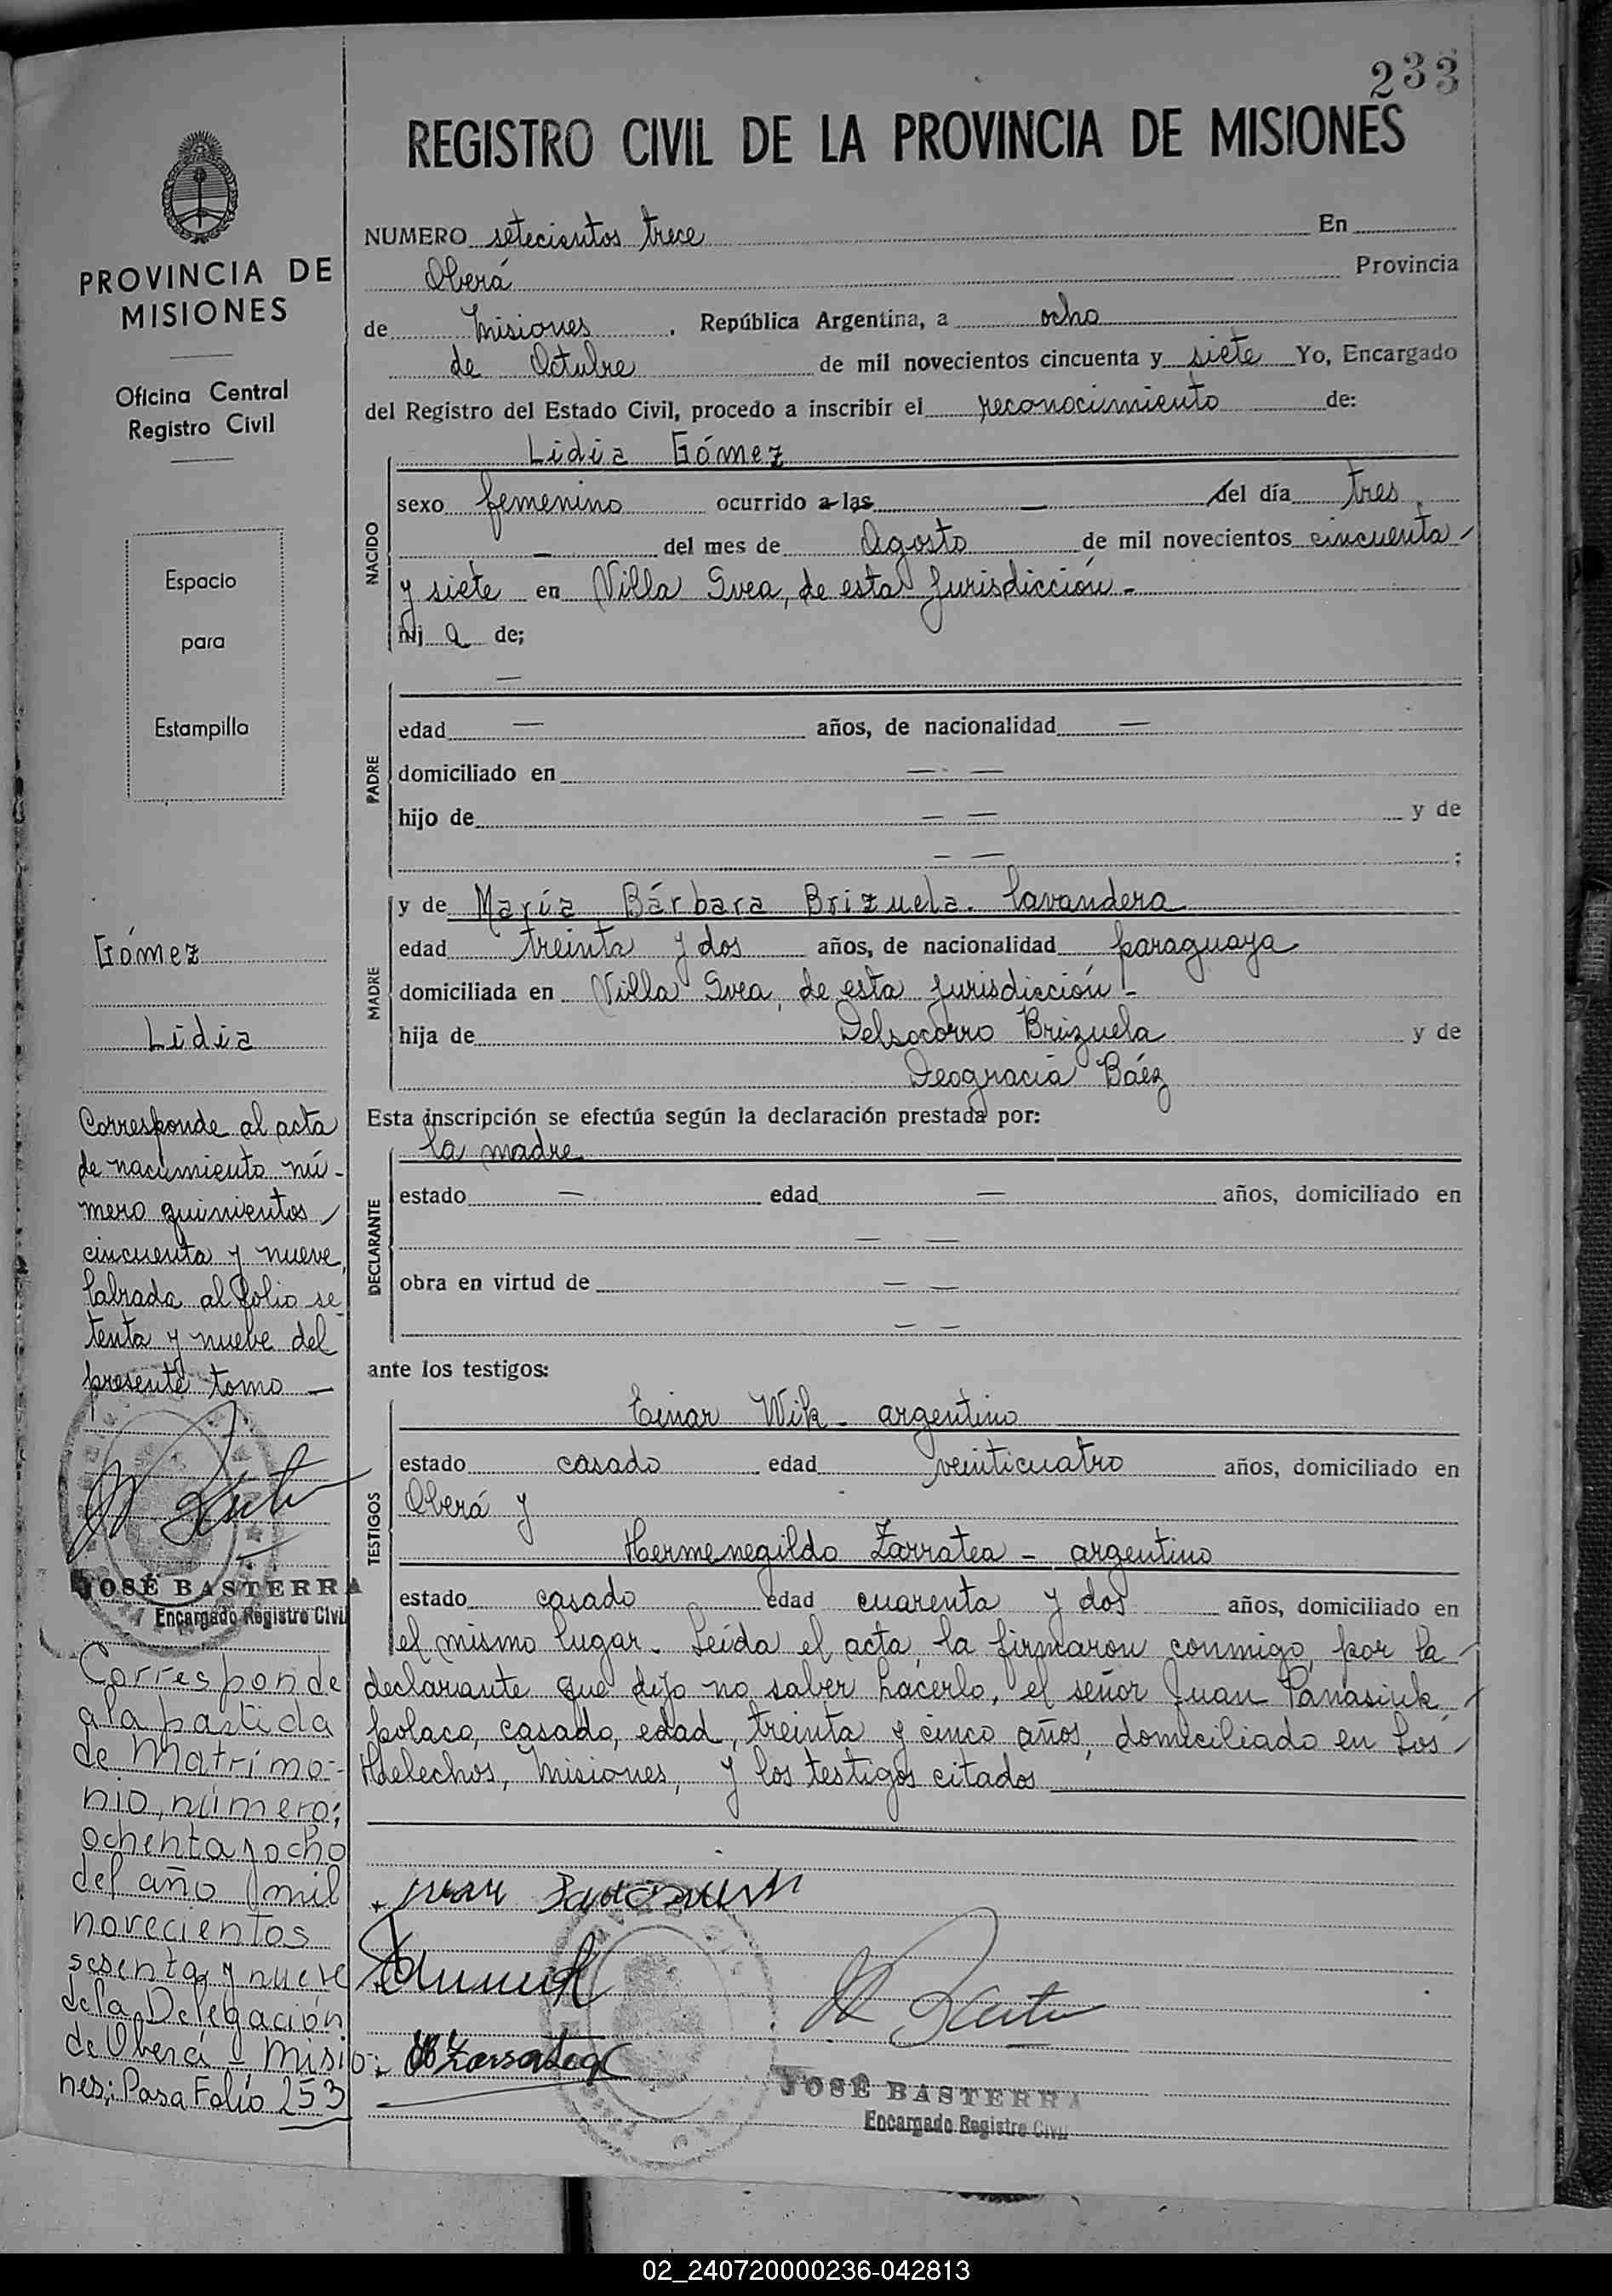 233
REGISTRO CIVIL DE LA PROVINCIA DE MISIONES
PROVINCIA DE
MISIONES
Oficina Central
Registro Civil
Espacio
para
Estampilla
Gómez
Lidia
Corresponde al acta
de nacimiento nú-
mero quinientos
cincuenta y nueve,
labrada al folio se-
tenta y nueve del
presente tomo —
JOSÉ BASTERRA
Encargado Registro Civil
Corresponde
a la partida
de Matrimo-
nio, número:
ochenta y ocho
del año mil
novecientos
sesenta y nueve
de la Delegación
de Oberá - Misio-
nes; Pasa Folio 253
NUMERO setecientos trece En
Oberá Provincia
de Misiones, República Argentina, a ocho
de Octubre de mil novecientos cincuenta y siete Yo, Encargado
del Registro del Estado Civil, procedo a inscribir el reconocimiento de:
NACIDO
Lidia Gómez
sexo femenino ocurrido a las — del día tres
— del mes de Agosto de mil novecientos cincuenta
y siete en Villa Svea, de esta Jurisdicción -
hij a de;
PADRE
—
edad — años, de nacionalidad —
domiciliado en — —
hijo de — — y de
— — ;
MADRE
y de María Bárbara Brizuela. lavandera
edad treinta y dos años, de nacionalidad paraguaya
domiciliada en Villa Svea, de esta jurisdicción -
hija de Delsocorro Brizuela y de
Deogracia Báez
Esta inscripción se efectúa según la declaración prestada por:
DECLARANTE
la madre
estado — edad — años, domiciliado en
— —
obra en virtud de — —
— —
ante los testigos:
TESTIGOS
Einar Wik - argentino
estado casado edad veinticuatro años, domiciliado en
Oberá y
Hermenegildo Zarratea - argentino
estado casado edad cuarenta y dos años, domiciliado en
el mismo lugar. Leída el acta, la firmaron conmigo, por la
declarante que dijo no saber hacerlo, el señor Juan Panasiuk,
polaco, casado, edad, treinta y cinco años, domiciliado en Los
Helechos, Misiones, y los testigos citados
JOSÉ BASTERRA
Encargado Registro Civil
02_240720000236-042813